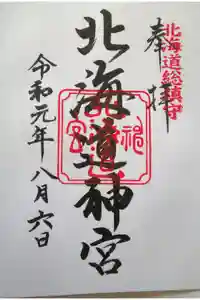 北海道総鎮守
奉拝
北海道神宮
令和元年八月六日